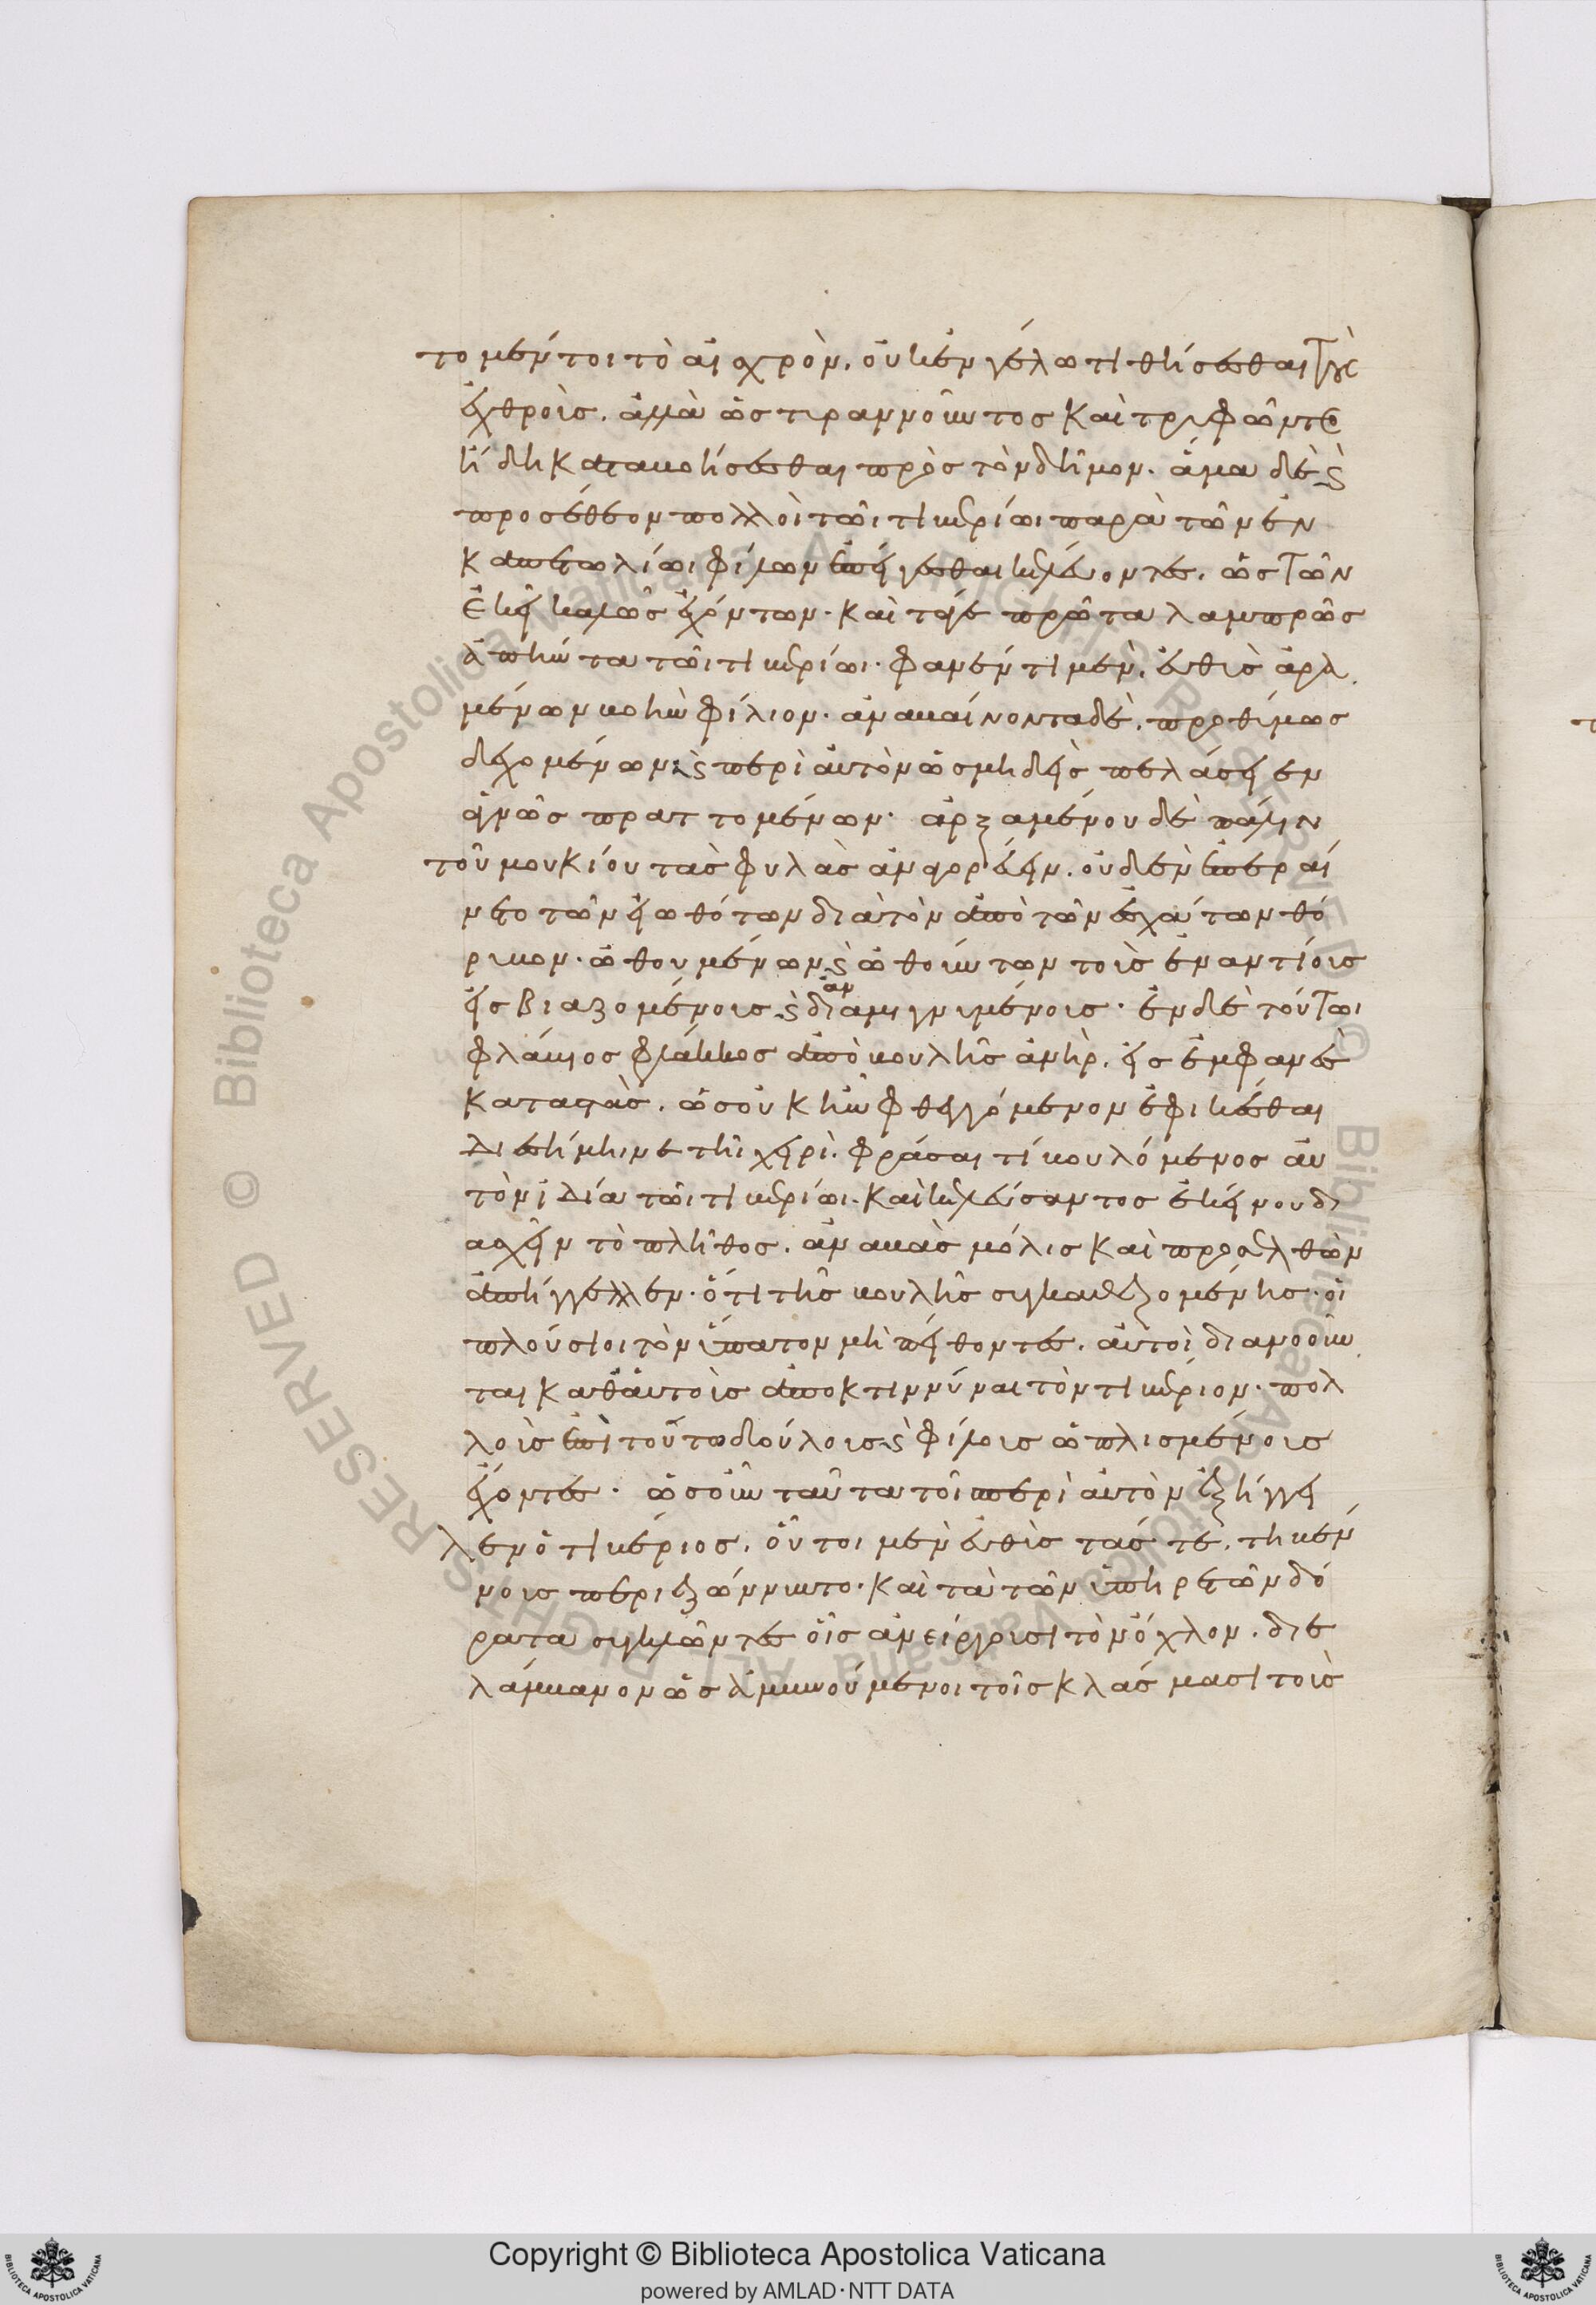 το μέντοι τὸ αἰσχρὸν, οὐκ ἐν γέλωτι θήσεσθαι τοὺς
ἐχθροὺς. ἀλλὰ ὡς τυραννοῦντος καὶ τρυφῶντος
ἤδη καταβοήσεσθαι πρὸς τὸν δῆμον. ἅμα δὲ καὶ
προσέθεον πολλοὶ τῶι τιβερίωι παρὰ τῶν ἐν
καπετωλίωι φίλων ἐπείγεσθαι κελεύοντες. ὡς τῶν
ἐκεῖ καλῶς ἐχόντων. καὶ τά γε πρῶτα λαμπρῶς
ἀπήντα τῶι τιβερίωι. φανέντι μὲν, εὐθὺς ἀρα
μένων βοὴν φίλιον. ἀναβαίνοντα δὲ, προθύμως
δεχομένων καὶ περὶ αὐτὸν ὡς μηδεὶς πελάσειεν
ἀγνὼς πραττομένων. ἀρξαμένου δὲ πάλιν
τοῦ μουκίου τὰς φυλὰς ἀναγορεύειν. οὐδὲν ἐπεραί
νετο τῶν εἰωθότων διὰ τὸν ἀπὸ τῶν ἐσχάτων θό
ρυβον. ὠθουμένων καὶ ὠθούντων τοὺς ἐναντίους
εἰσβιαζομένους καὶ διαναμιγνυμένους. ἐν δὲ τούτωι
φλάυιος φλάκκος ἀπὸ βουλῆς ἀνὴρ. εἰς ἐμφανὲς
καταστὰς. ὡς οὐκ ἦν φθεγγόμενον ἐφικέσθαι
διεσήμηνε τῆι χειρὶ. φράσαι τί βουλόμενος αὐ
τὸν ἰδία τῶι τιβερίωι. καὶ κελεύσαντος ἐκείνου δι
ασχεῖν τὸ πλῆθος. ἀναβὰς μόλις καὶ προσελθὼν
ἀπήγγελλεν. ὅτι τῆς βουλῆς συγκαθεζομένης. οἱ
πλούσιοι τὸν ὕπατον μὴ πείθοντες. αὐτοὶ διανοοῦν
ται καθ' αὑτοὺς ἀποκτιννύναι τὸν τιβέριον. πολ
λοὺς ἐπὶ τοῦτο δούλους καὶ φίλους ὡπλισμένους
ἔχοντες. ὡς οὖν ταῦτα τοῖς περὶ αὐτὸν ἐξήγγει
λεν ὁ τιβέριος. οὗτοι μὲν εὐθὺς τάς τε, τηβέν
νους περιεζώννυντο. καὶ τὰ τῶν ὑπηρετῶν δό
ρατα συγκλῶντες οἷς ἀνείργουσι τὸν ὄχλον. διε
λάμβανον ὡς ἀμυνούμενοι τοῖς κλάσμασι τοὺς